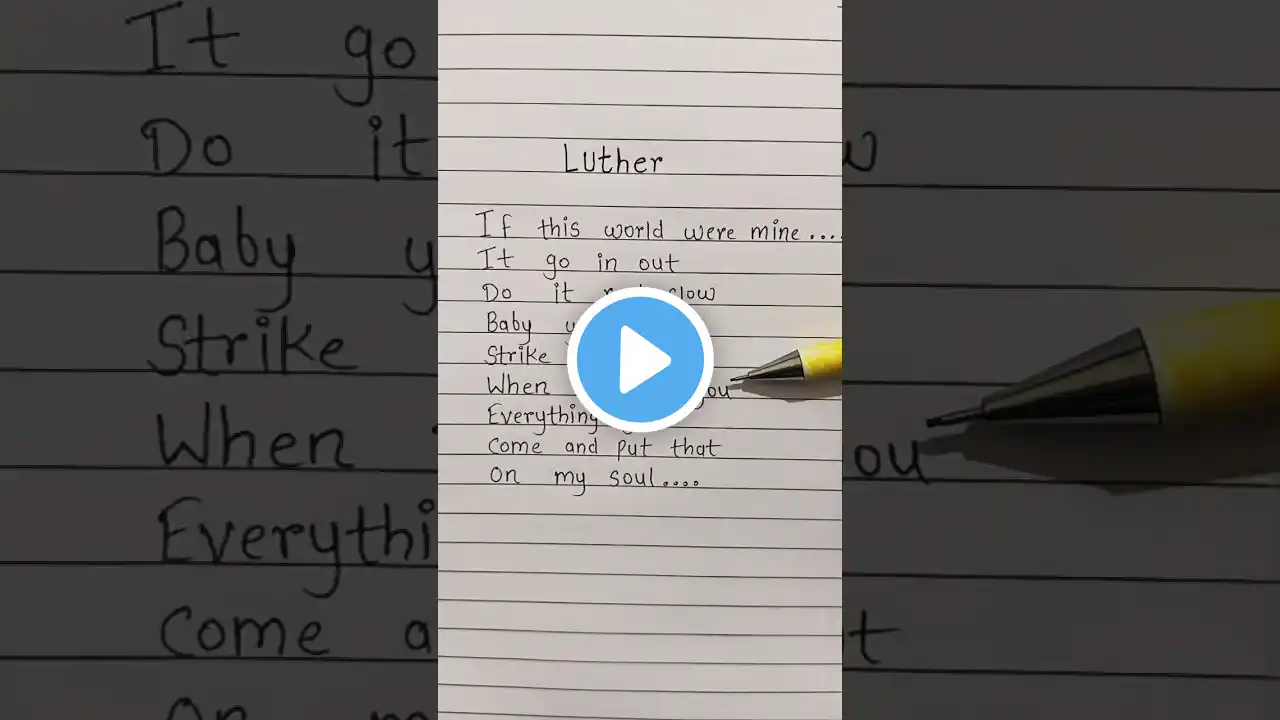 Luther
If this world were mine....
It go in out
Do it slow
Baby
Strike
When you
Everything
Come and put that
on my soul....